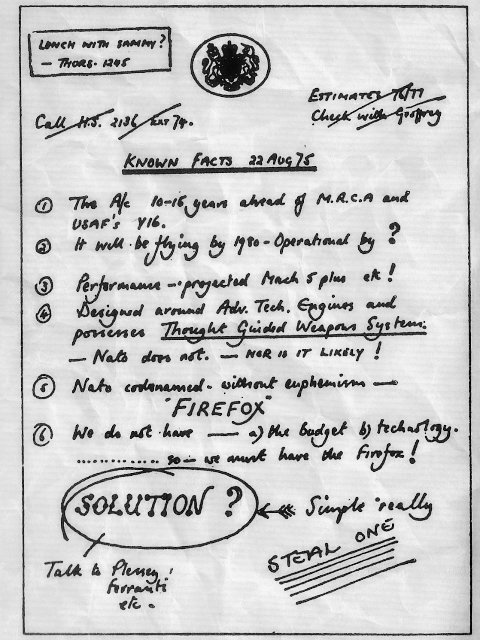 LUNCH WITH SAMMY?
— THURS. 1245
ESTIMATES 76/77
Call H.S. 2136 EXT 78.
Check with Godfrey
KNOWN FACTS 22 AUG 75
① The A/c 10-15 years ahead of M.R.C.A and
USAF's Y16.
② It will be flying by 1980 - Operational by ?
③ Performance — projected Mach 5 plus etc !
④ Designed around Adv. Tech. Engines and
possesses Thought Guided Weapons System.
— Nato does not. — NOR IS IT LIKELY !
⑤ Nato codenamed - without euphemism —
"FIREFOX"
⑥ We do not have — a) the budget b) technology.
.............. so — we must have the Firefox !
SOLUTION ?
Simple really
STEAL ONE
Talk to Plessey,
Ferranti
etc.